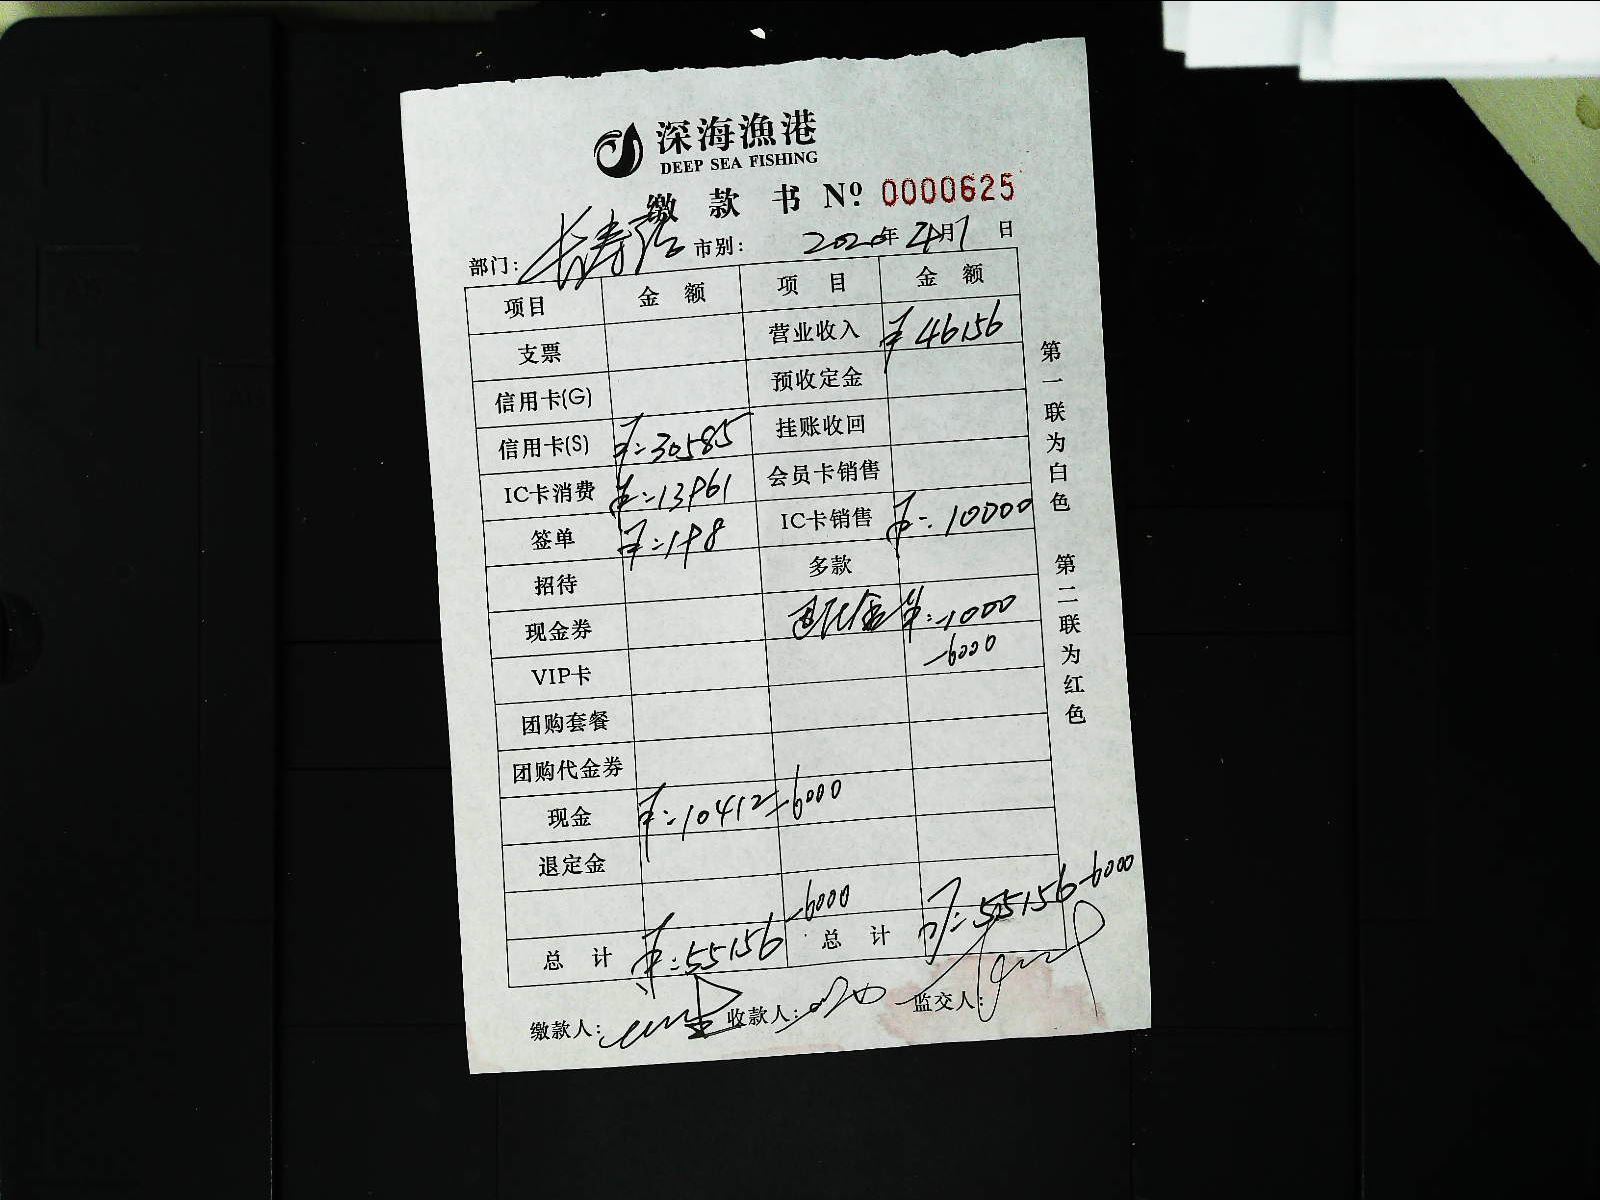 深海漁港
DEEP SEA FISHING
缴款书 Nº: 0000625
部门: 长寿路 市别: 2020年4月1日
项目 金额 项目 金额
支票 营业收入 ¥46156
信用卡(G) 预收定金
信用卡(S) ¥:30585 挂账收回
IC卡消费 ¥:13961 会员卡销售
签单 ¥:198 IC卡销售 ¥:10000
招待 多款
现金券 退现金 ¥:-1000
VIP卡 -6000
团购套餐
团购代金券
现金 ¥:10412 -6000
退定金
总计 ¥:55156 -6000 总计 ¥:55156 -6000
缴款人: 收款人: 监交人:
第一联为白色 第二联为红色